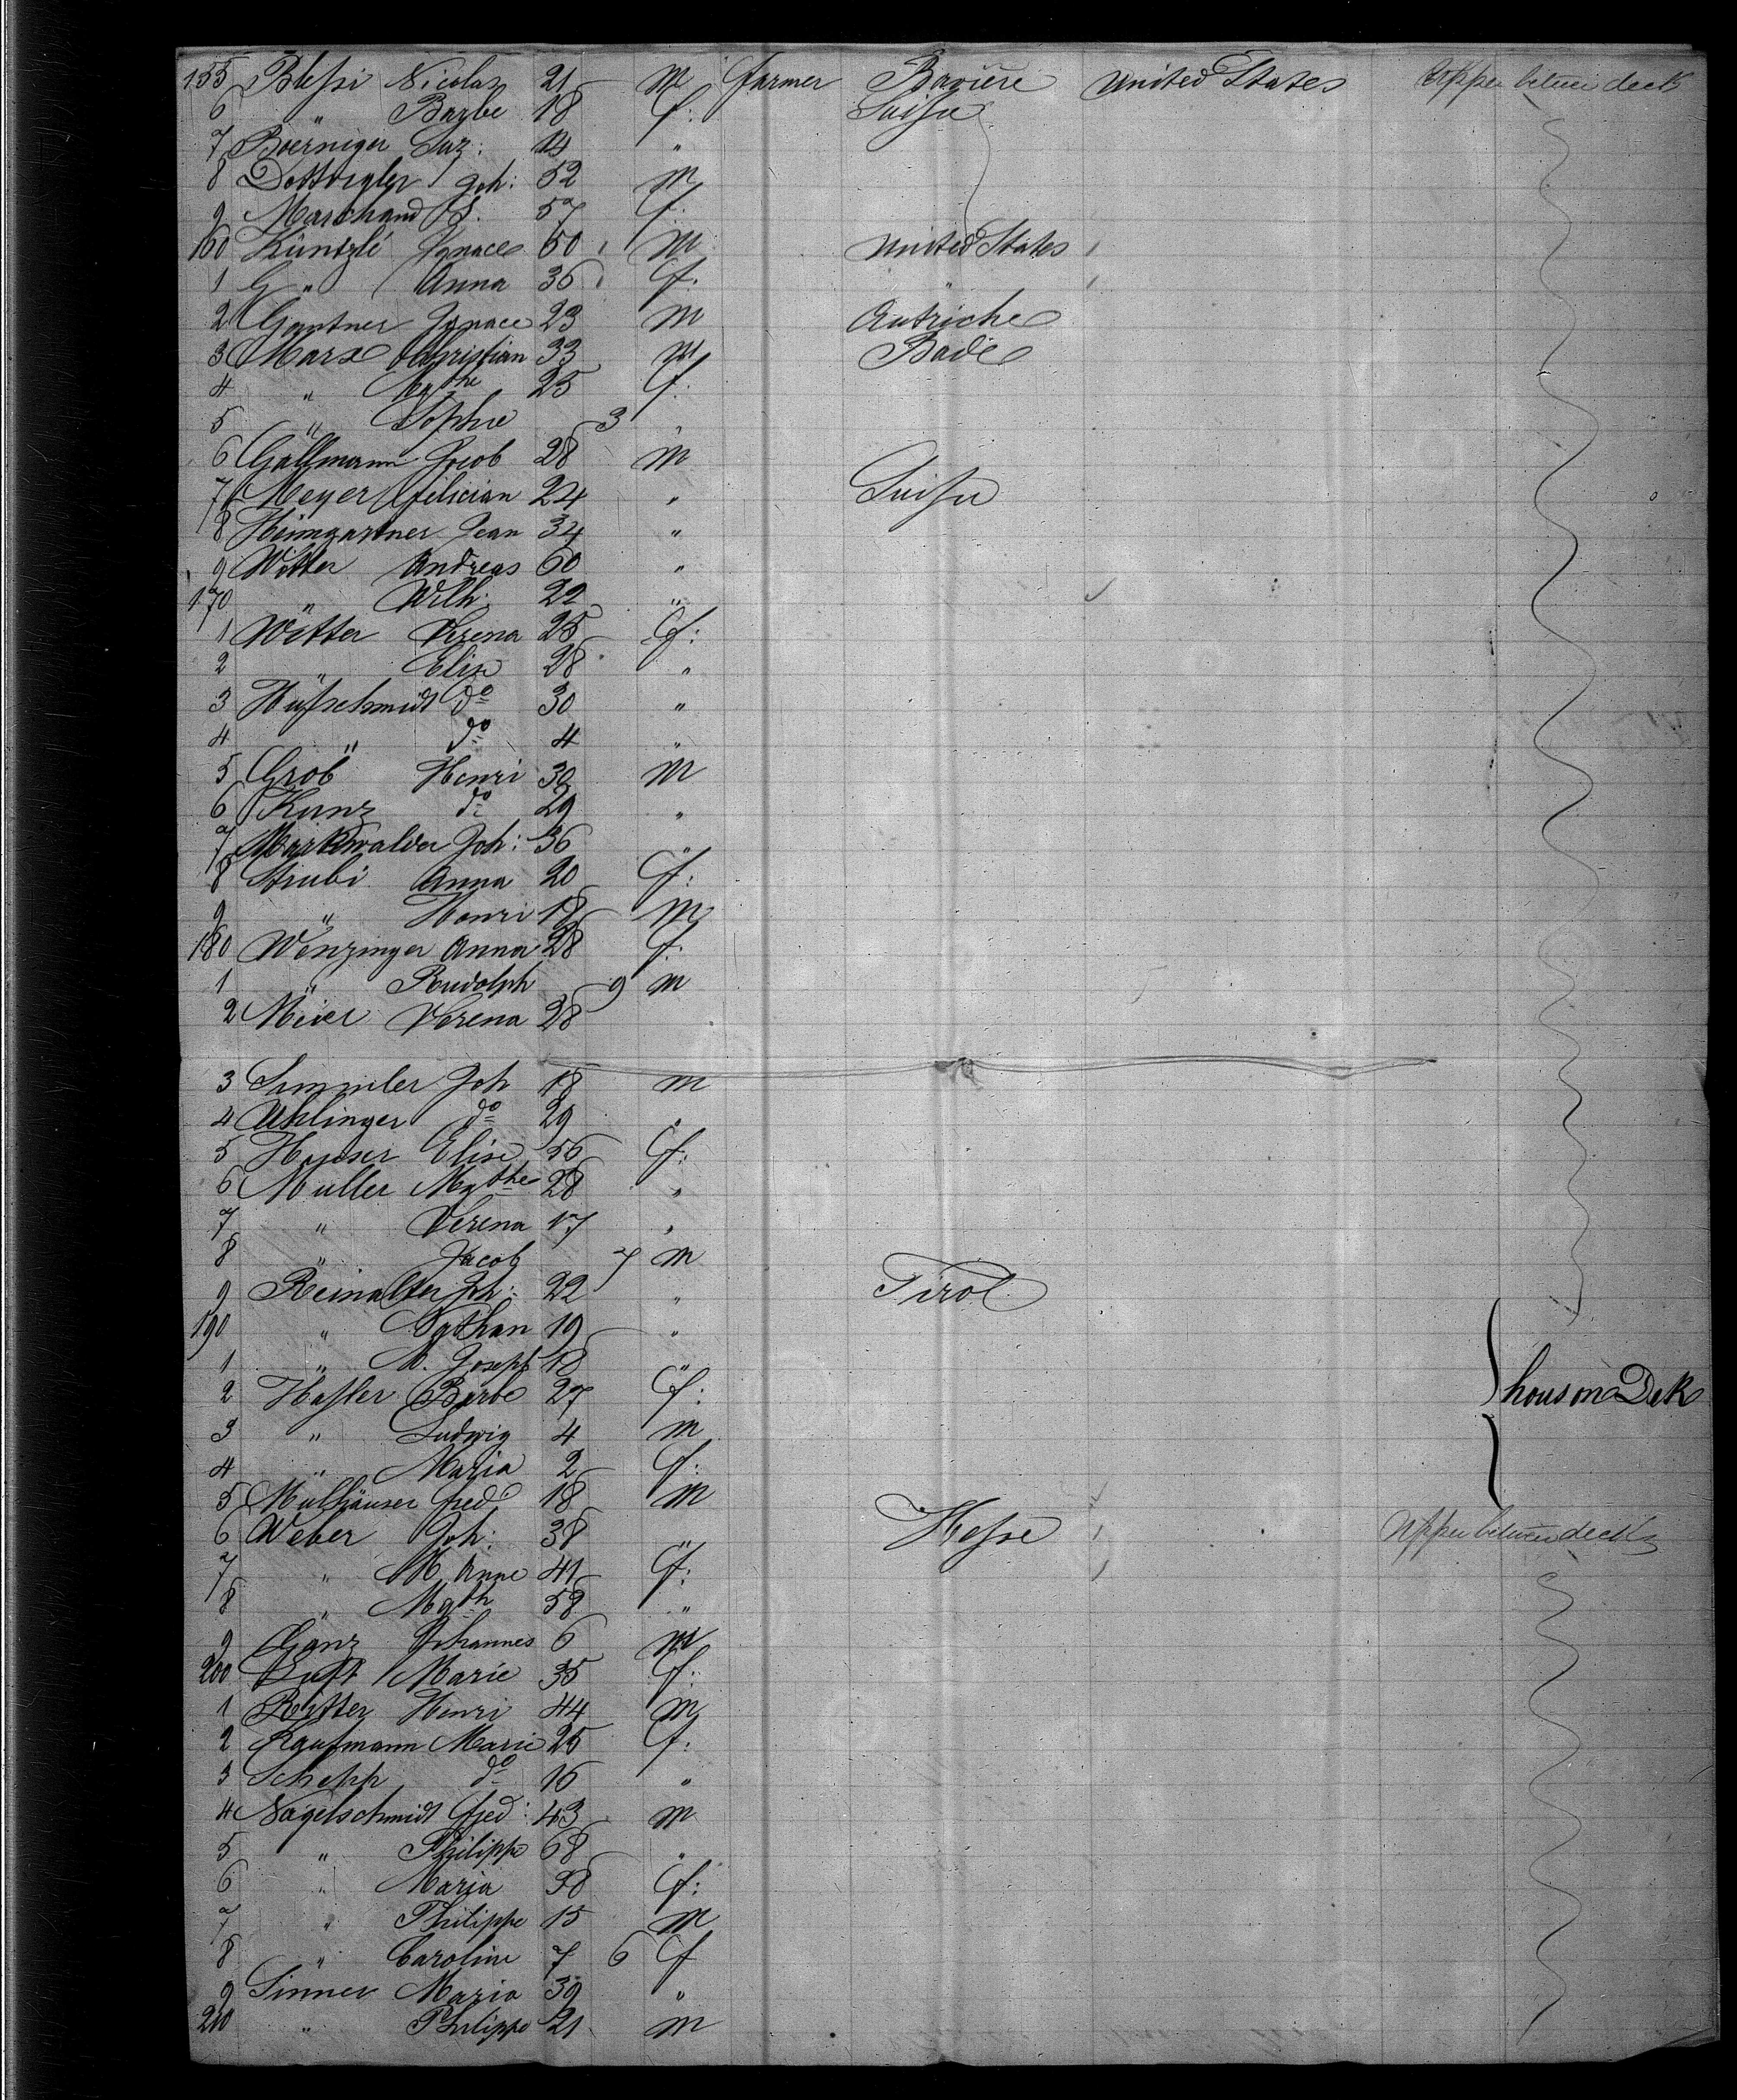 155 Blessi Nicolas 21 m farmer Bavière United States Upper betwen deck
6 " Barbe 18 f. Suisse
7 Boerniger Suz: 14 "
8 Joh: 52 m
9 Marchand S. 57 f.
160 Küntzlé Ignace 50 m United States
1 " Anna 36 f.
2 Gantner Ignace 23 m Autriche
3 Marx Christian 33 m Bade
4 " Mgthe 25 f.
5 " Sophie 3 "
6 Gallmann Jacob 28 m
7 Meyer Felician 24 " Suisse
8 Heimgartner Jean 34 "
9 Witter Andreas 60 "
170 " Wilh: 22 "
1 Witter Verena 25 f:
2 " Elise 28 "
3 Hufschmidt do 30 "
4 " do 4 "
5 Grob Henri 30 m
6 Kunz do 29 "
7 Markwalder Joh: 36 "
8 Strubi Anna 20 f:
9 " Henri 18 m
180 Wenzinger Anna 28 f.
1 " Rudolph 9 m
2 Meier Verena 28
3 Simmler Joh 18 m
4 Uehlinger do 29 "
5 Hauser Elise 56 f:
6 Muller Mgthe 28 "
7 " Verena 17 "
8 " Jacob 7 m
9 Reinalter Joh: 22 " Tirol
190 " 19 "
1 " M. Joseph 18 "
2 Hassler Barbe 27 f: hous on Dek
3 " Ludwig 4 m
4 " Maria 2 f:
5 Mulhäuser fred 18 m
6 Weber Joh: 38 " Hesse Upper betwen deck
7 " M Anne 41 f:
8 " Mgth 58 "
9 Ganz Johannes 6 m
200 Luft Marie 35 f:
1 Ritter Henri 44 m
2 Kaufmann Marie 25 f.
3 Schepp do 16 "
4 Nagelschmidt fred: 43 m
5 " Philippe 68 "
6 " Maria 38 f:
7 " Philippe 15 m
8 " Caroline 7 6 f
9 Sinner Maria 39 "
210 " Philippe 21 m